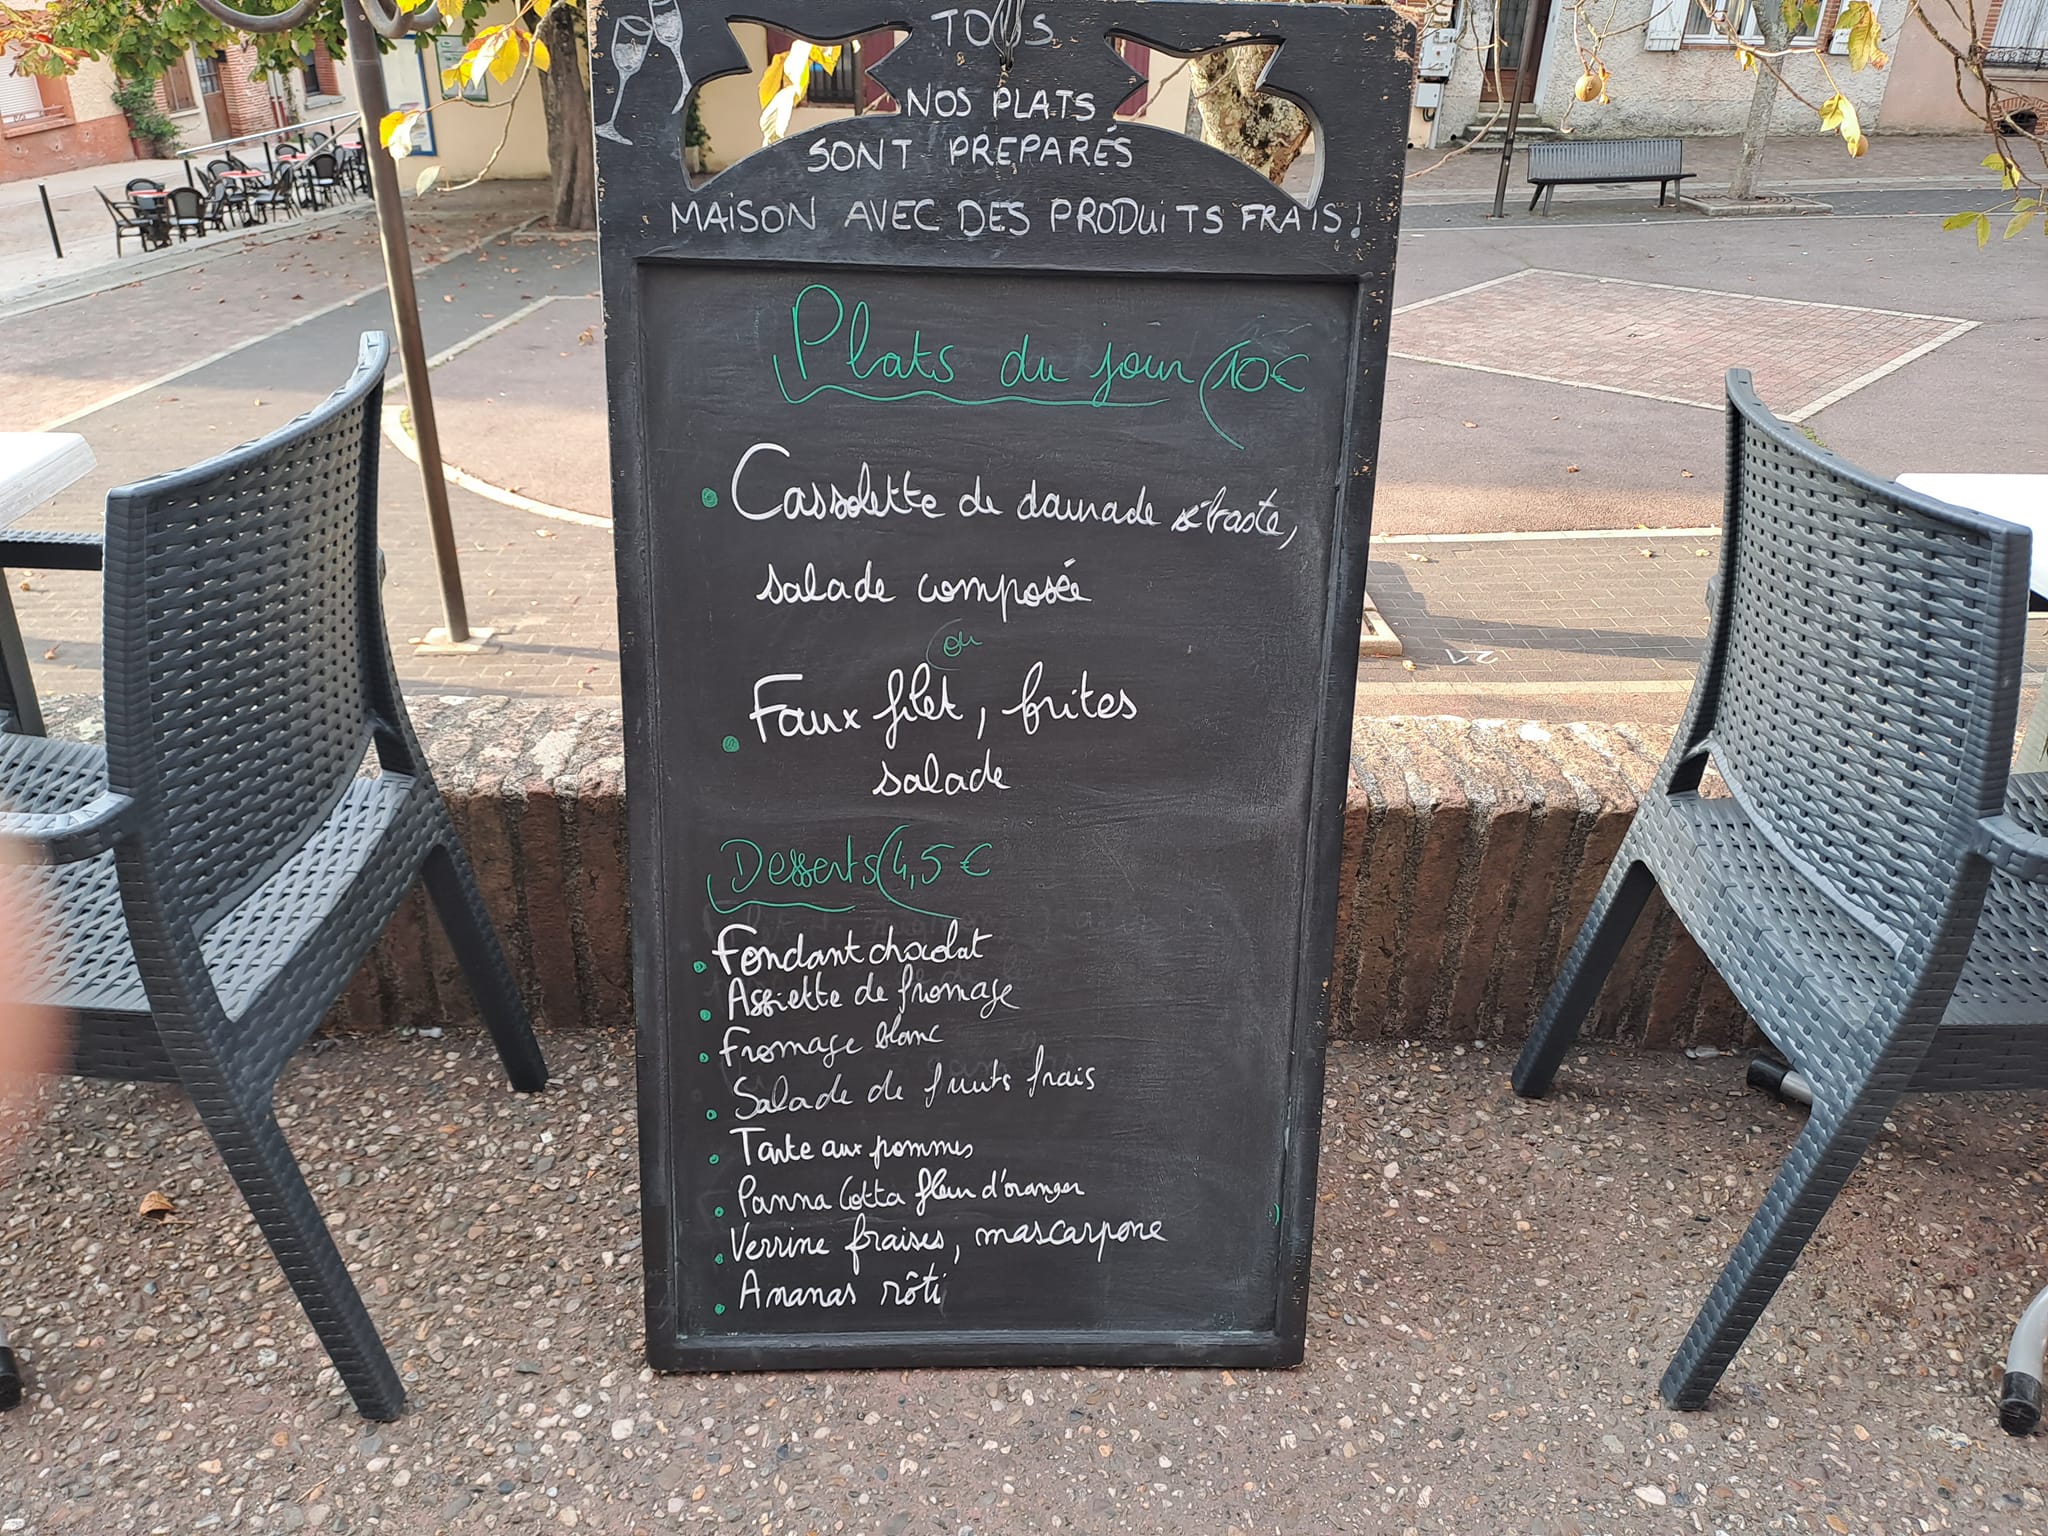 TOUS
NOS PLATS
SONT PRÉPARÉS
MAISON AVEC DES PRODUITS FRAIS!
Plats du jour 10€
Cassolette de daurade sébaste,
salade composée
ou
Faux filet, frites
salade
Desserts 4,5€
Fondant chocolat
Assiette de fromage
Fromage blanc
Salade de fruits frais
Tarte aux pommes
Panna Cotta fleur d'oranger
Verrine fraises, mascarpone
Ananas rôti